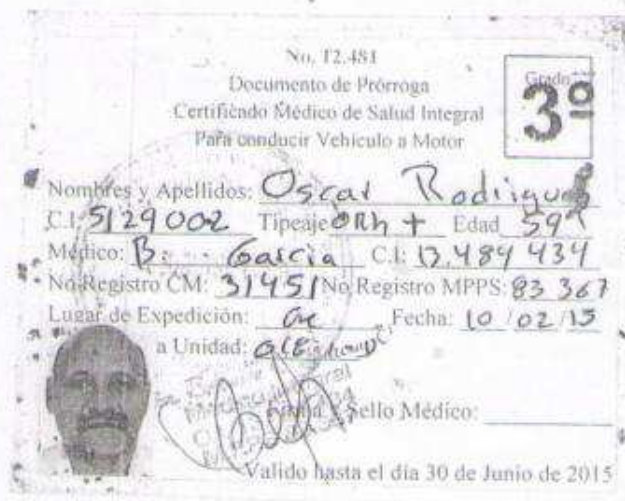 No. 12.481
Documento de Prórroga
Certificado Médico de Salud Integral
Para conducir Vehículo a Motor
Grado
3º
Nombres y Apellidos: Oscar Rodriguez
C.I. 5129002 Tipeaje ORh + Edad 59
Médico: B. Garcia C.I: 13.484 434
No Registro CM: 31451 No Registro MPPS: 83 367
Lugar de Expedición: Fecha: 10/02/15
a Unidad:
Sello Médico:
Valido hasta el día 30 de Junio de 2015